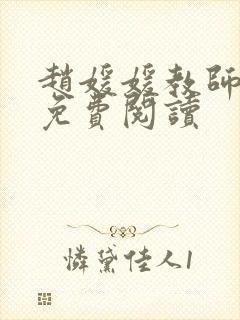 趙媛媛教師
免費閱讀
憐黛佳人1